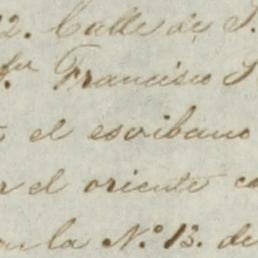 2. Calle de S.
Francisco
el escribano
el oriente
la N.º 13. de